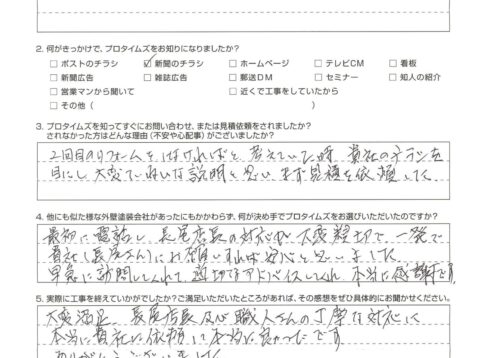 2. 何がきっかけで、プロタイムズをお知りになりましたか?
□ ポストのチラシ ☑ 新聞のチラシ □ ホームページ □ テレビCM □ 看板
□ 新聞広告 □ 雑誌広告 □ 郵送DM □ セミナー □ 知人の紹介
□ 営業マンから聞いて □ 近くで工事をしていたから
□ その他( )
3. プロタイムズを知ってすぐにお問い合わせ、または見積依頼をされましたか?
されなかった方はどんな理由(不安や心配事)がございましたか?
2回目のリフォームをしなければと考えていた時、貴社のチラシを
目にし大変ていねいな説明と思いまず見積を依頼した
4. 他にも似た様な外壁塗装会社があったにもかかわらず、何が決め手でプロタイムズをお選びいただいたのですか?
最初に電話し長尾店長の対応が大変親切で、一発で
貴社(長尾さん)にお願いすれば安心と思いました
早急に訪問してくれて適切なアドバイスしてくれ本当に感謝です
5. 実際に工事を終えていかがでしたか?ご満足いただいたところがあれば、その感想をぜひ具体的にお聞かせください。
大変満足、長尾店長及び職人さんの丁寧な対応に
本当に貴社に依頼して本当に良かったです
ありがとうございました